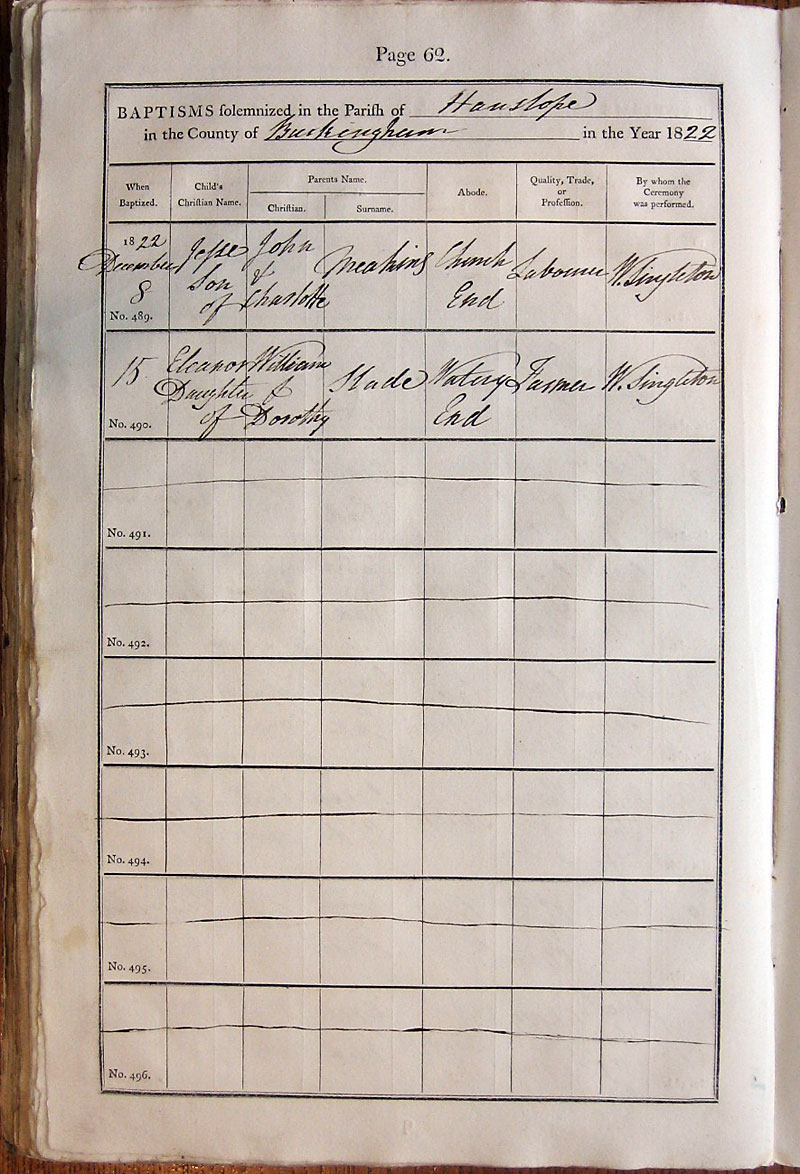 Page 62.
BAPTISMS solemnized in the Parish of Hanslope
in the County of Buckingham in the Year 1822
When Baptized.
Child's Christian Name.
Parents Name.
Christian.
Surname.
Abode.
Quality, Trade, or Profession.
By whom the Ceremony was performed.
1822
December
8
No. 489.
Jesse
Son
of
John
&
Charlotte
Meakins
Church
End
Labourer
W. Singleton
15
No. 490.
Eleanor
Daughter
of
William
&
Dorothy
Slade
Watery
End
Farmer
W. Singleton
No. 491.
No. 492.
No. 493.
No. 494.
No. 495.
No. 496.
P